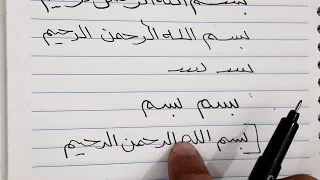 بسم الله الرحمن الرحيم
بسم الله الرحمن الرحيم
بسـ بسـ
بسم بسم :
بسم الله الرحمن الرحيم]